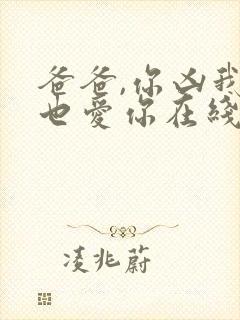 爸爸,你凶我
也爱你在线
凌兆蔚